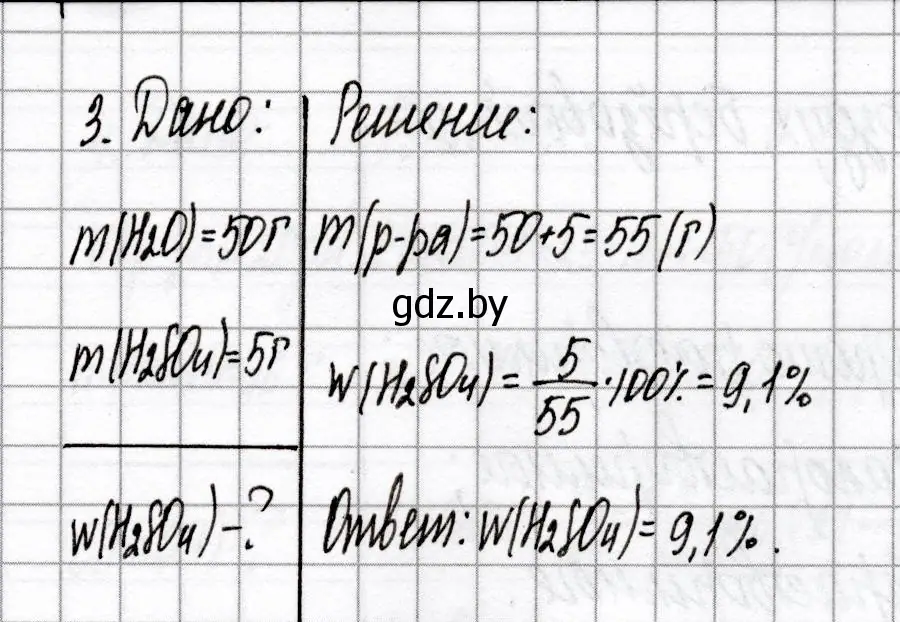 3. Дано:
m(H₂O)=50г
m(H₂SO₄)=5г
w(H₂SO₄)-?
Решение:
m(р-ра)=50+5=55(г)
gdz.by
w(H₂SO₄) = 5/55 · 100% = 9,1%
Ответ: w(H₂SO₄)= 9,1%.